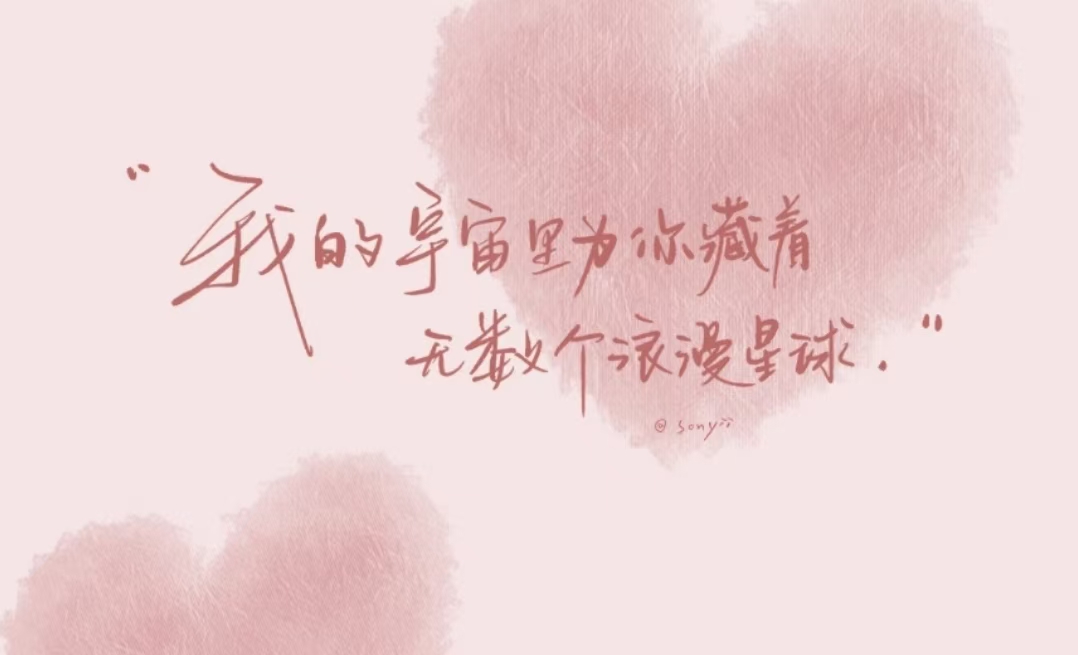 “我的宇宙里为你藏着
无数个浪漫星球.”
@sonyii